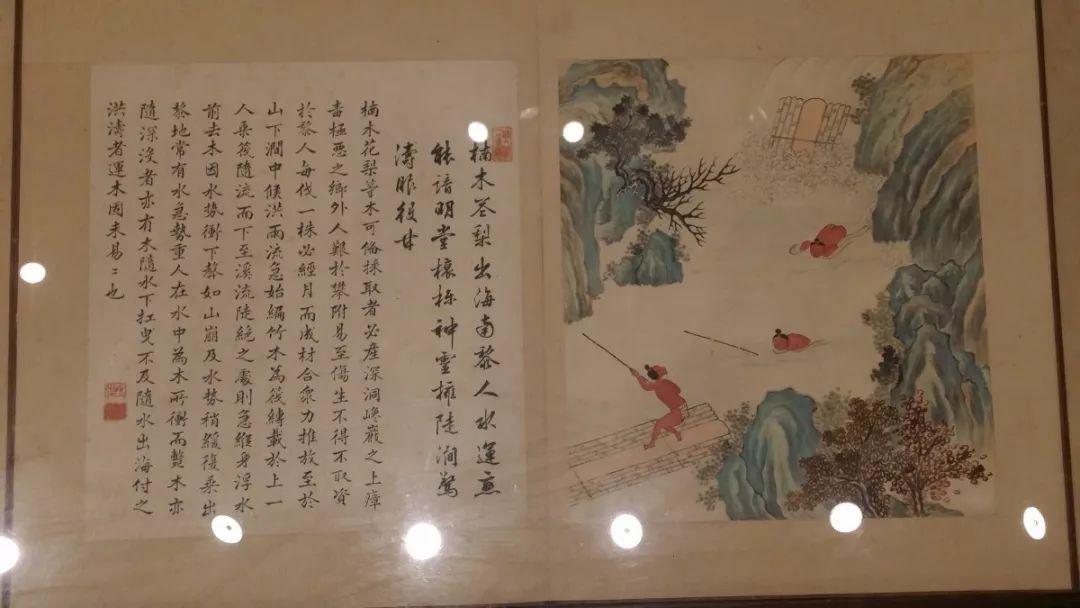 楠木花梨出海南黎人水運亦
能諳明堂榱栋神靈擁陡澗驚
濤服役甘
楠木花梨等木可俻採取者必產深洞峻巖之上瘴
毒極惡之鄉外人艱於攀附易至傷生不得不取資
於黎人每伐一株必經月而成材合衆力推放至於
山下澗中候洪雨流急始編竹木為筏縛載於上一
人乗筏隨流而下至溪流陡絕之處則急縱身浮水
前去木因水勢衝下聲如山崩及水勢稍緩復乗出
黎地常有水急勢重人在水中為木所衝而斃木亦
隨深没者亦有木隨水下扛曳不及隨水出海付之
洪濤者運木固未易〻也